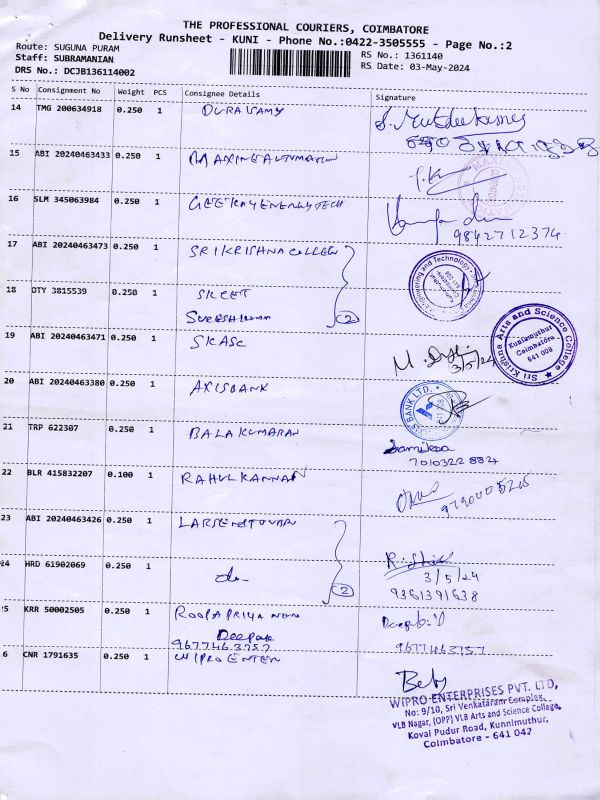 THE PROFESSIONAL COURIERS, COIMBATORE
Delivery Runsheet - KUNI - Phone No.:0422-3505555 - Page No.:2
Route: SUGUNA PURAM
Staff: SUBRAMANIAN
DRS No.: DCJB136114002
RS No.: 1361140
RS Date: 03-May-2024
S No Consignment No Weight PCS Consignee Details Signature
14 TMG 200634918 0.250 1 DURAISAMY
15 ABI 20240463433 0.250 1 MAXINE AUTOMATION
16 SLM 345063984 0.250 1 GEETKAY ENERGY TECH
9842712374
17 ABI 20240463473 0.250 1 SRI KRISHNA COLLEGE
Engineering and Technology
18 DTY 3815539 0.250 1 SKCET
SURESH KUMAR 2
19 ABI 20240463471 0.250 1 SKASC
3/5/24
Sri Krishna Arts and Science College
Kuniamuthur
Coimbatore
641 008
20 ABI 20240463380 0.250 1 AXIS BANK
AXIS BANK LTD.
21 TRP 622307 0.250 1 BALAKUMARAN
7010322882
22 BLR 415832207 0.100 1 RAHUL KANNAN
9790005215
23 ABI 20240463426 0.250 1
24 HRD 61902069 0.250 1 do 2
3/5/24
9361391638
25 KRR 50002505 0.250 1 ROOPA PRIYA
Deepak
9677463757
9677463757
6 CNR 1791635 0.250 1 WIPRO ENTER
WIPRO ENTERPRISES PVT. LTD,
No: 9/10, Sri Venkataram Complex,
VLB Nagar, (OPP) VLB Arts and Science College,
Kovai Pudur Road, Kunnimuthur,
Coimbatore - 641 042